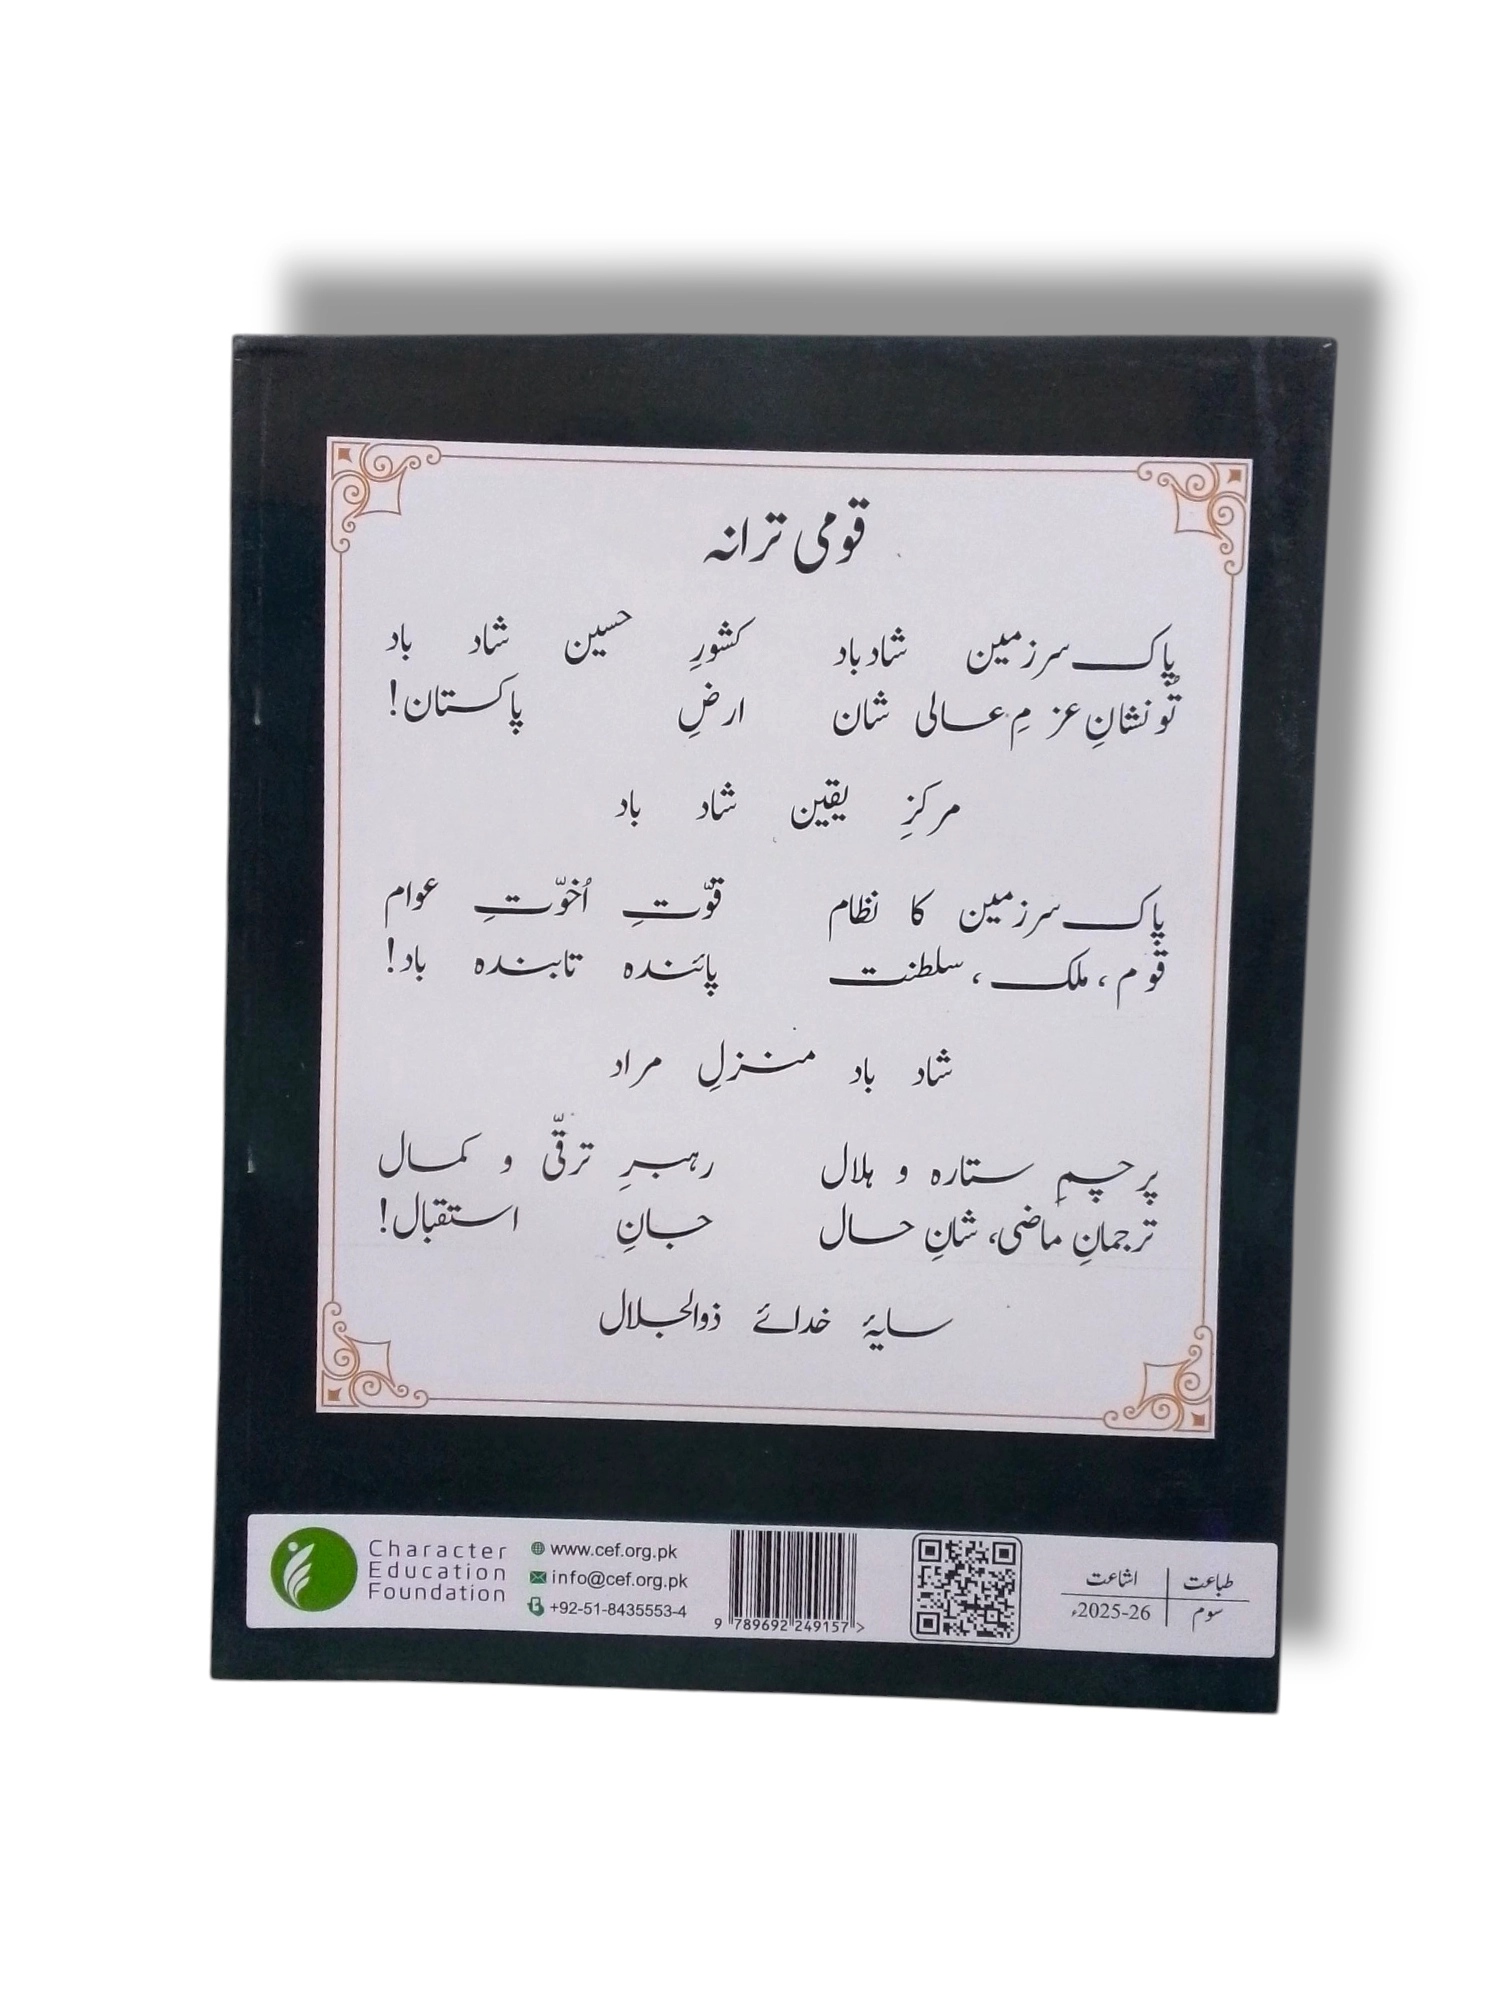 قومی ترانہ
پاک سرزمین شاد باد کشورِ حسین شاد باد
تُو نشانِ عزمِ عالی شان ارضِ پاکستان!
مرکزِ یقین شاد باد
پاک سرزمین کا نظام قوّتِ اُخوّتِ عوام
قوم، ملک، سلطنت پائندہ تابندہ باد!
شاد باد منزلِ مراد
پرچمِ ستارہ و ہلال رہبرِ ترقّی و کمال
ترجمانِ ماضی، شانِ حال جانِ استقبال!
سایۂ خدائے ذوالجلال
Character
Education
Foundation
www.cef.org.pk
info@cef.org.pk
+92-51-8435553-4
9 789692 249157 >
طباعت اشاعت
سوم 2025-26ء